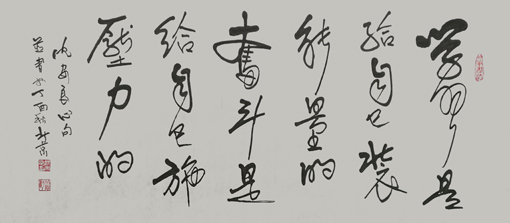 学习是
给自己装
能量的
奋斗是
给自己施
压力的